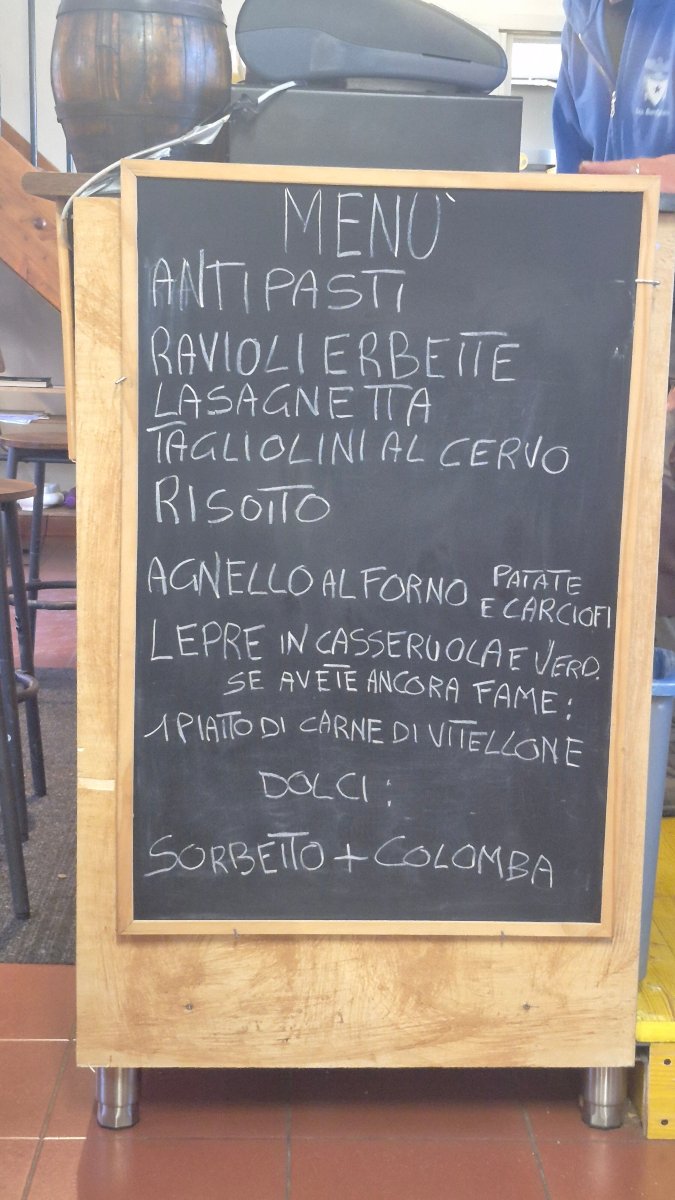 MENU`
ANTIPASTI
RAVIOLI ERBETTE
LASAGNETTA
TAGLIOLINI AL CERVO
RISOTTO
AGNELLO AL FORNO PATATE
E CARCIOFI
LEPRE IN CASSERUOLA E VERD.
SE AVETE ANCORA FAME:
1 PIATTO DI CARNE DI VITELLONE
DOLCI:
SORBETTO + COLOMBA